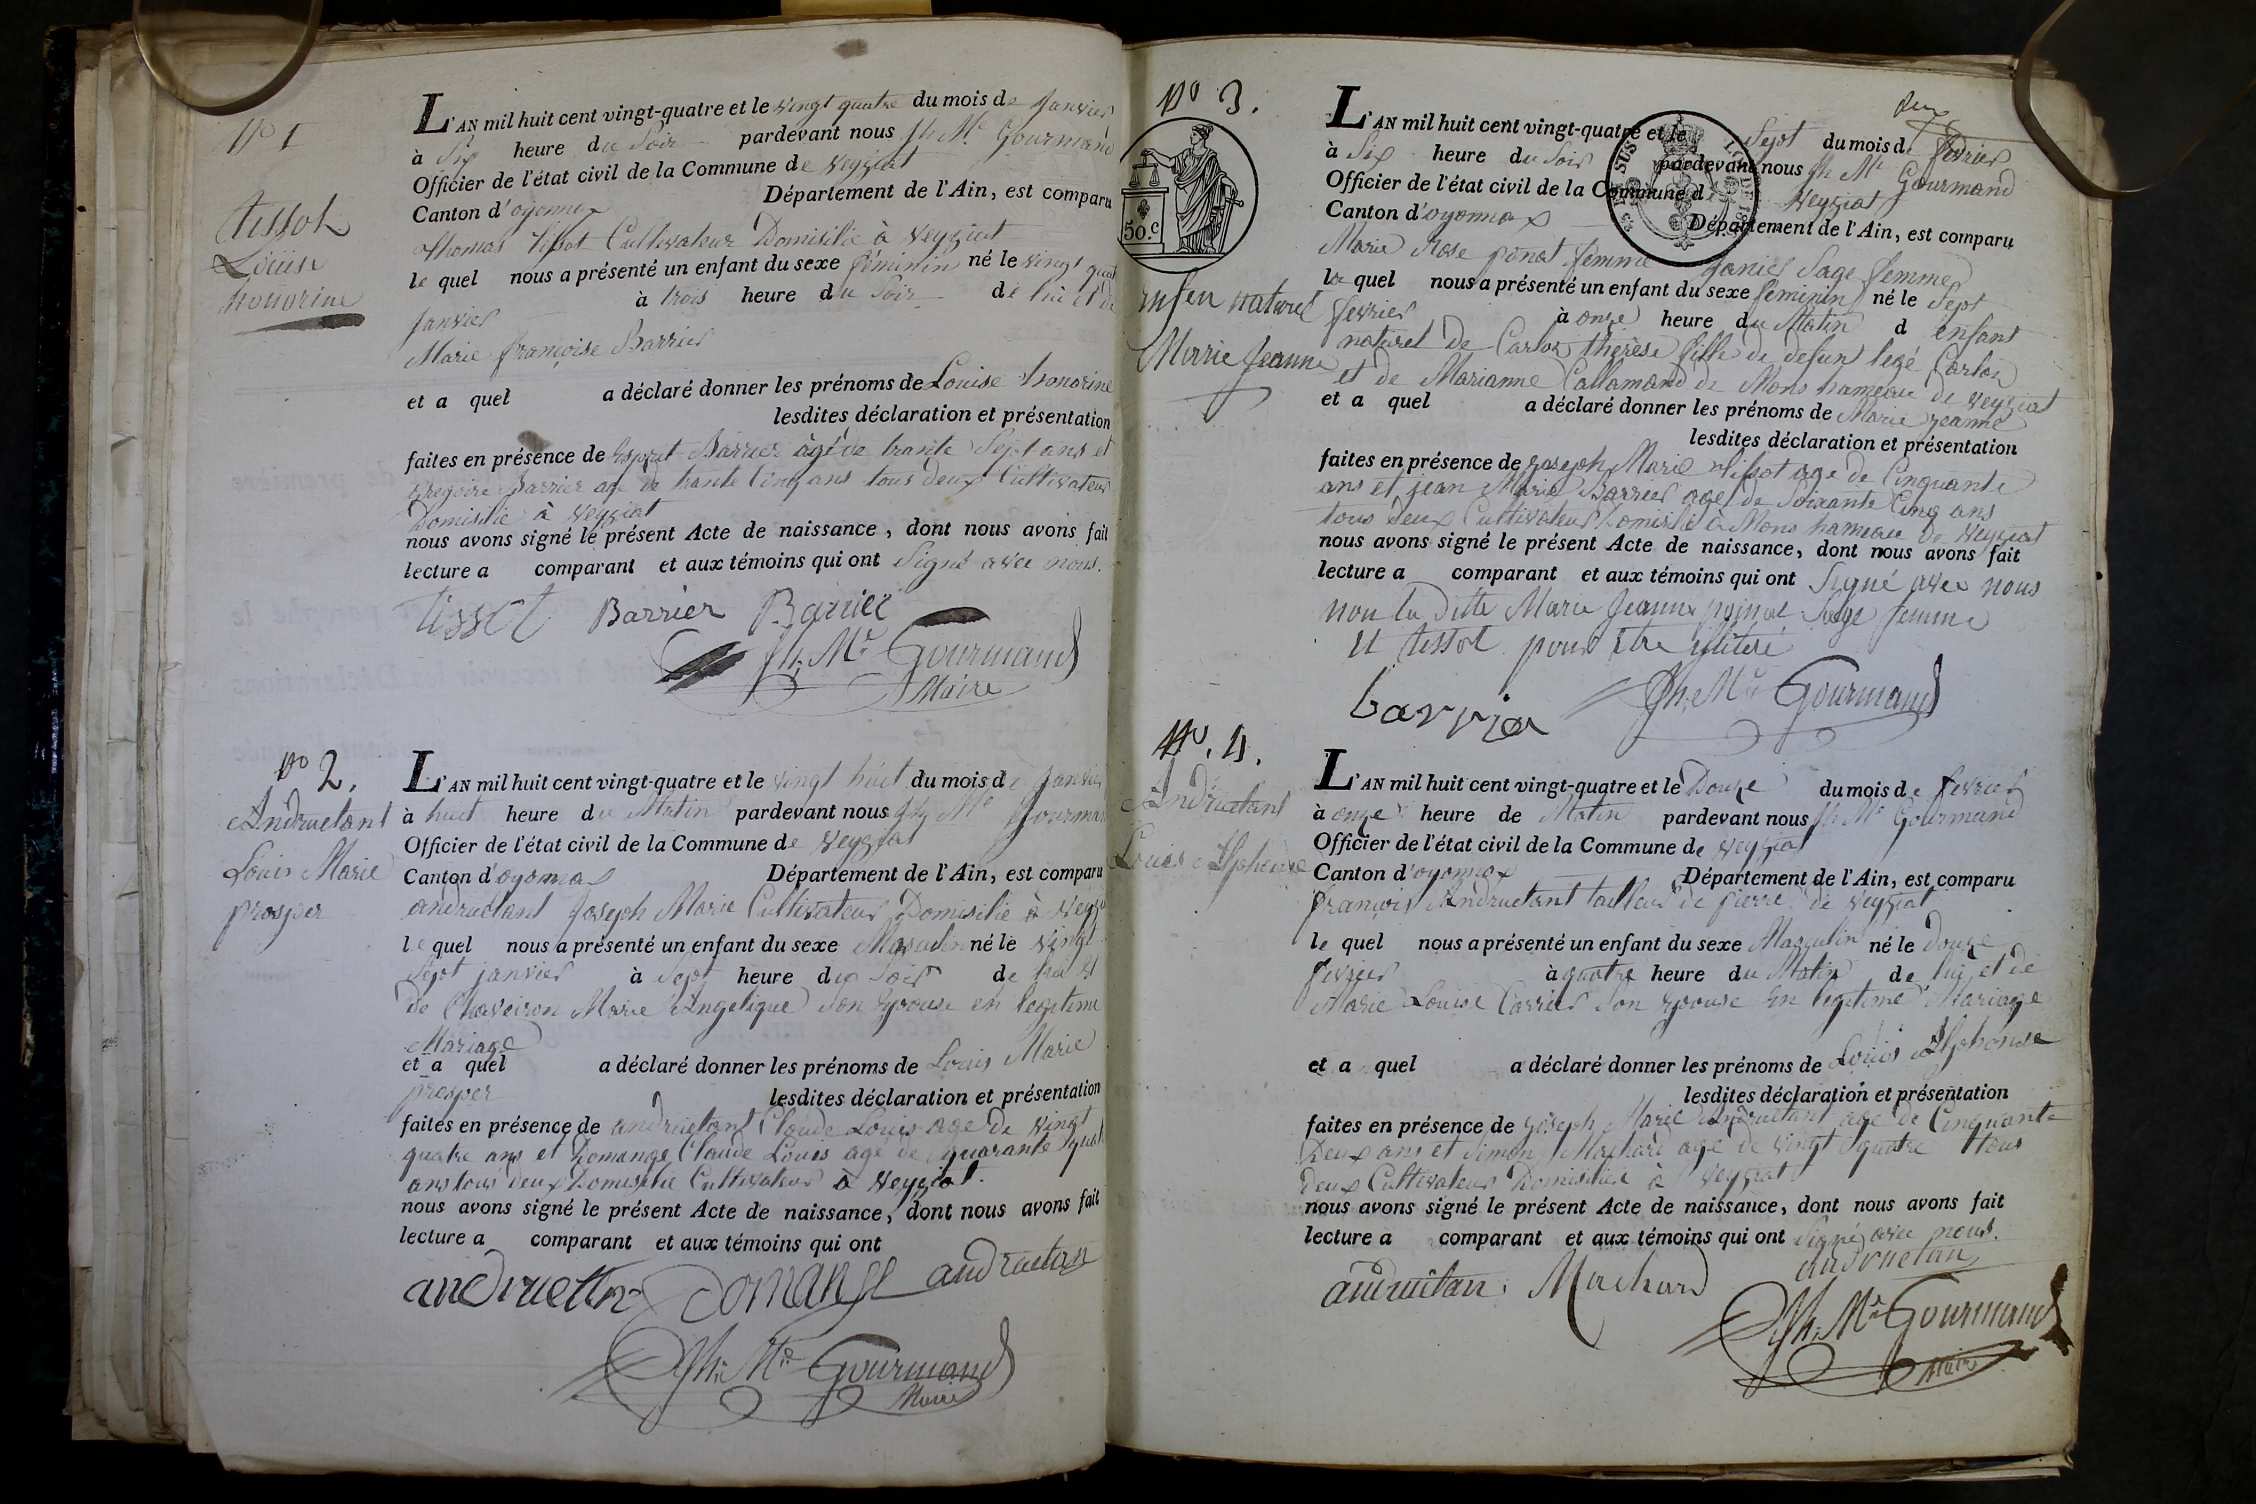 N° 1
Tissot
Louise
honorine
L'AN mil huit cent vingt-quatre et le vingt quatre du mois de Janvier
à Six heure du Soir pardevant nous Jh Me Gourmand
Officier de l'état civil de la Commune de Veyziat
Canton d'oyonnax Département de l'Ain, est comparu
thomas tissot Cultivateur Domisilié à Veyziat
le quel nous a présenté un enfant du sexe féminin né le vingt quat
Janvier à trois heure du Soir de lui et de
Marie françoise Barrier
et a quel a déclaré donner les prénoms de Louise honorine
lesdites déclaration et présentation
faites en présence de Esprit Barrier âgé de trante Sept ans et
gregoire Barrier agé de trante Cinq ans tous deux Cultivateur
Domisilié à Veyziat
nous avons signé le présent Acte de naissance, dont nous avons fait
lecture a comparant et aux témoins qui ont Signé avec nous.
tissot Barrier Barrier
Jh. Me Gourmand
Maire
N° 2.
Andruetant
Louis Marie
prosper
L'AN mil huit cent vingt-quatre et le vingt huit du mois de Janvier
à huit heure du Matin pardevant nous Jh Me Gourman
Officier de l'état civil de la Commune de Veyziat
Canton d'oyonnax Département de l'Ain, est comparu
andruetant Joseph Marie Cultivateur Domisilié à Veyzi
le quel nous a présenté un enfant du sexe Masculin né le vingt
Sept janvier à Sept heure du Soir de lui et
de Chaveiron Marie Angelique son Epouse en legitime
Mariage
et a quel a déclaré donner les prénoms de Louis Marie
prosper lesdites déclaration et présentation
faites en présence de andruetant Claude Louis age de vingt
quatre ans et Domange Claude Louis age de quarante quat
ans tous deux Domisilié Cultivateur à Veyziat.
nous avons signé le présent Acte de naissance, dont nous avons fait
lecture a comparant et aux témoins qui ont
Domange andruetan
Jh. Me Gourmand
Maire
N° 3.
50.c
enfen naturel
Marie Jeanne
L'AN mil huit cent vingt-quatre et le Sept du mois de fevrier
à Six heure du Soir pardevant nous Jh Me Gourmand
Officier de l'état civil de la Commune de Veyziat
Canton d'oyonnax Département de l'Ain, est comparu
Marie Rose ponat femme Janier Sage femme
la quel nous a présenté un enfant du sexe féminin né le Sept
fevrier à onze heure du Matin d enfant
naturel de Carlon thérèse fille de defun legé Carlon
et de Marianne Callamand de Mons hameau de Veyziat
et a quel a déclaré donner les prénoms de Marie jeanne
lesdites déclaration et présentation
faites en présence de joseph Marie tissot age de Cinquante
ans et jean Marie Barrier age de Soixante Cinq ans
tous deux Cultivateur Domisilié à Mons hameau De Veyziat
nous avons signé le présent Acte de naissance, dont nous avons fait
lecture a comparant et aux témoins qui ont Signé avec nous
non la ditte Marie Jeanne Sage femme
et tissot pour être
barrier Jh. Me Gourmand
N°. 4.
Andruetant
Louis Alphonse
L'AN mil huit cent vingt-quatre et le Douze du mois de fevrier
à onze heure de Matin pardevant nous Jh Me Gourmand
Officier de l'état civil de la Commune de Veyziat
Canton d'oyonnax Département de l'Ain, est comparu
françois Andruetant tailleur de pierre de Veyziat
le quel nous a présenté un enfant du sexe Masculin né le Douze
fevrier à quatre heure du Matin de lui et de
Marie Louise Carrier Son epouse en legitime Mariage
et a quel a déclaré donner les prénoms de Louis Alphonse
lesdites déclaration et présentation
faites en présence de joseph Marie Andruetant age de Cinquante
Deux ans et Simon Machard age de vingt quatre tous
deux Cultivateur Domisilié à Veyziat
nous avons signé le présent Acte de naissance, dont nous avons fait
lecture a comparant et aux témoins qui ont Signé avec nous.
andruetan
andruetan. Machard
Jh. Me Gourmand
Maire